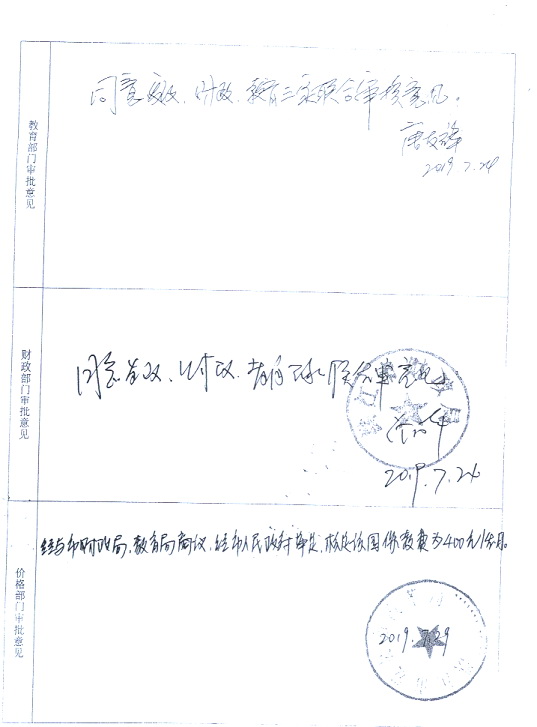 教育部门审批意见
同意发改、财政、教育三家联合审核意见。
2019.7.24
财政部门审批意见
同意发改、财政、教育三家联合审意见
2019.7.24
价格部门审批意见
经与市财政局、教育局商议,经市人民政府审定,核定该园保教费为400元/月。
2019.7.29